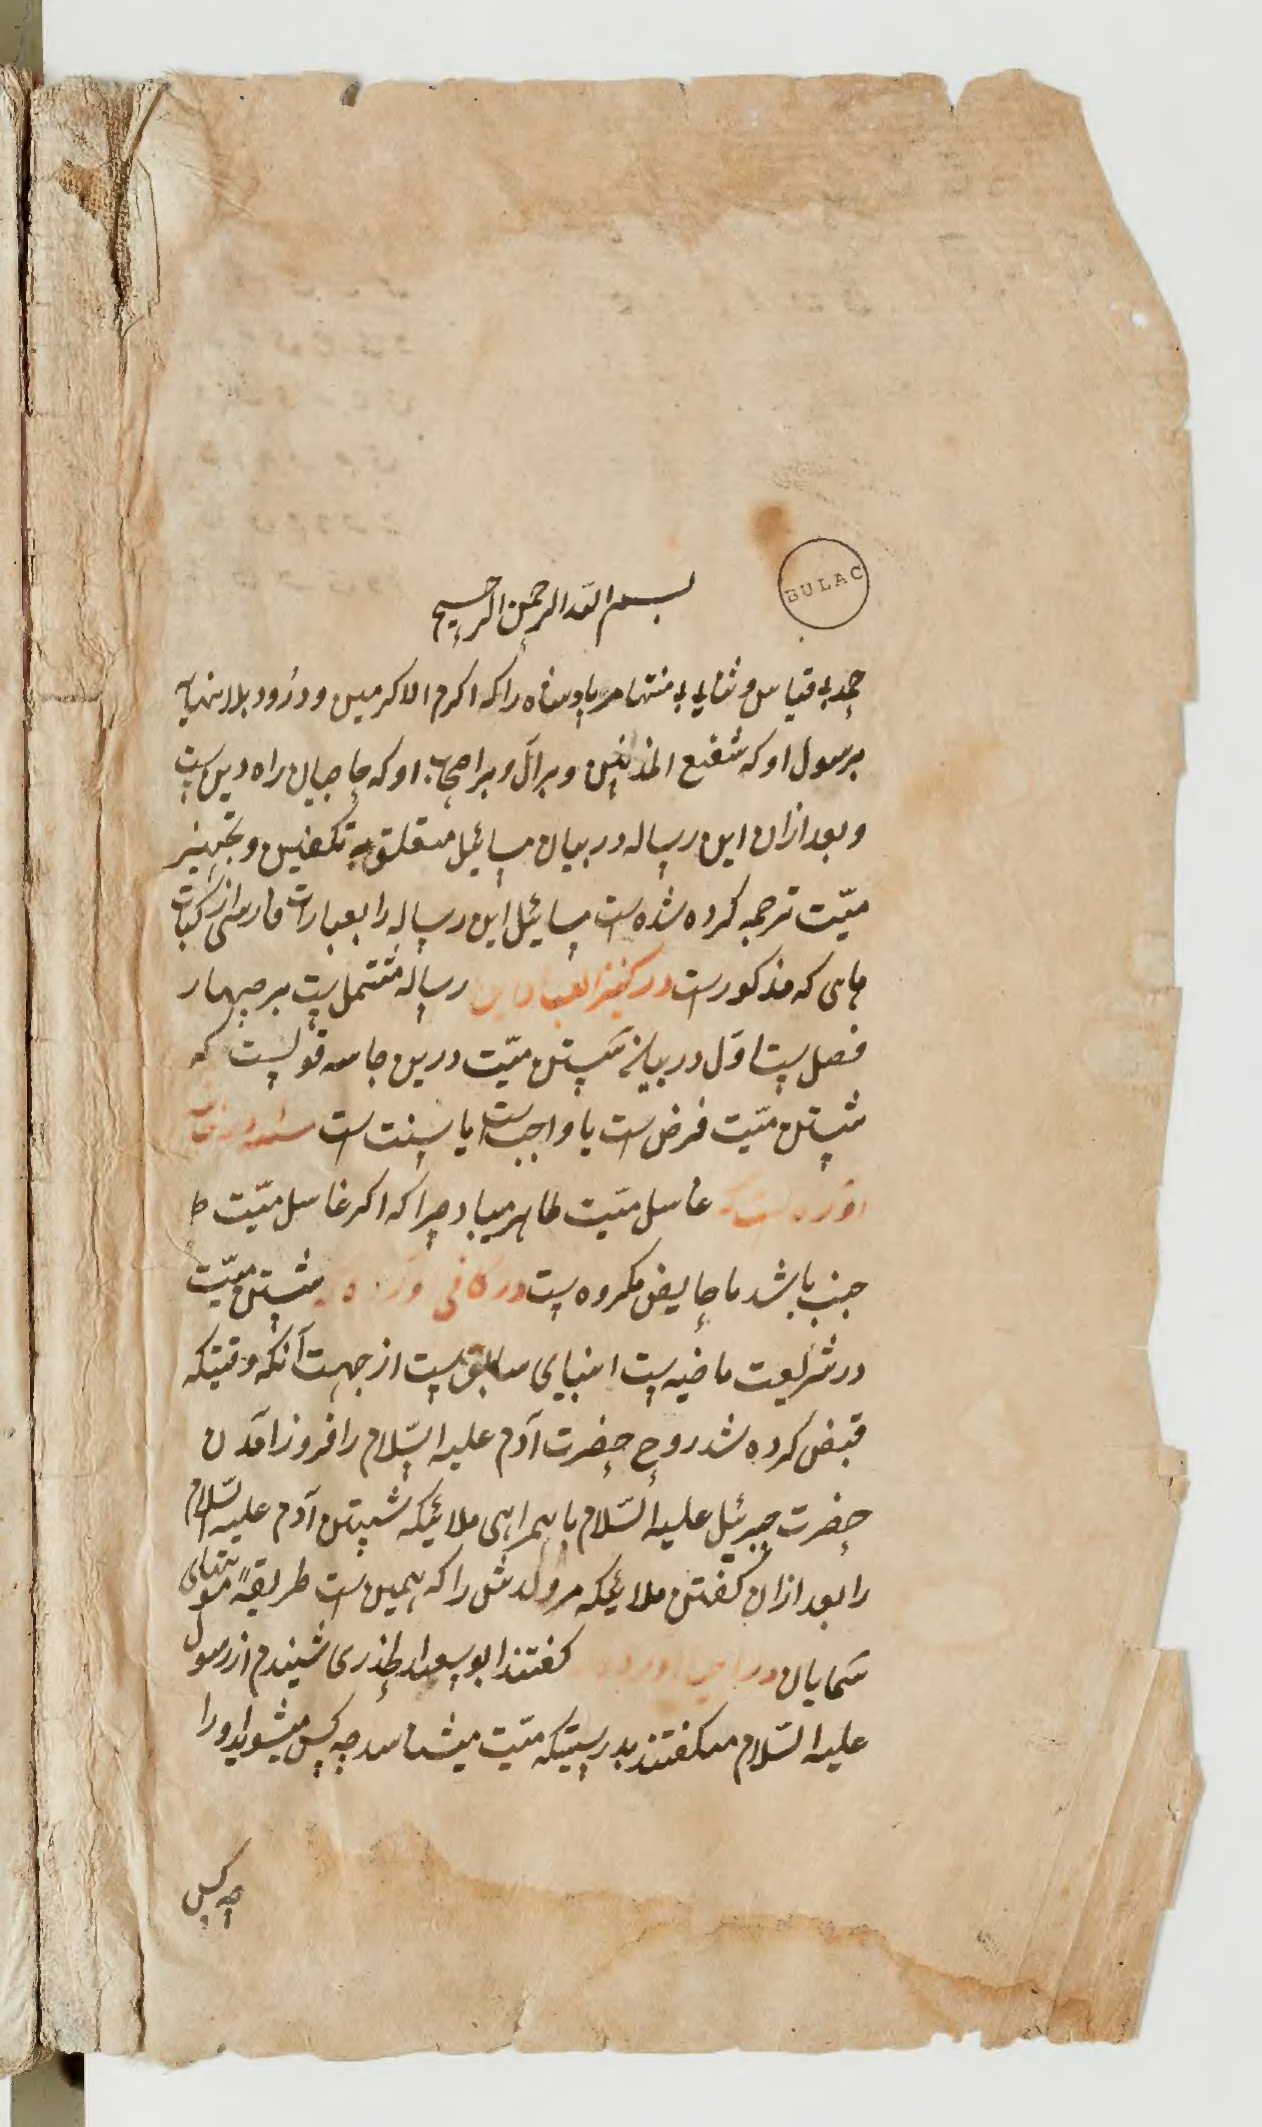 BULAC
بسم الله الرحمن الرحیم
حمد بی قیاس و ثنای بی منتها مر پادشاه را که اکرم الاکرمین و درود بلا نهایه
برسول او که شفیع المذنبین و بر آل و بر اصحاب او که حاجیان راه دین است
و بعد ازان این رساله در بیان مسائیل متعلق به تکفین و تجهیز
میّت ترجمه کرده شده است مسائیل این رساله را بعبارات فارسی از کتاب
های که مذکور است در کنز العباد این رساله مشتمل است بر چهار
فصل است اوّل در بیان شستن میّت درین جامه قولیست که
شستن میّت فرض است یا واجب است یا سنت است
غاسل میّت طاهر میباد چرا که اکر غاسل میّت
جنب باشد یا حایض مکروه است در کافی شستن میّت
در شریعت ماضیه است انبیای سابق است از جهت آنکه وقتیکه
قبض کرده شد روح حضرت آدم علیه السّلام را فروز آمدن
حضرت جبرئیل علیه السّلام با همراهی ملائیکه شستن آدم علیه السّلام
را بعد ازان کفتن ملائیکه مر ولدش را که همین است طریقهٔ موتهای
شمایان کفتند ابو سعید الخذری شنیدم از رسول
علیه السّلام میکفتند بدرستیکه میّت میشناسد چه کس میشوید او را
چه کس